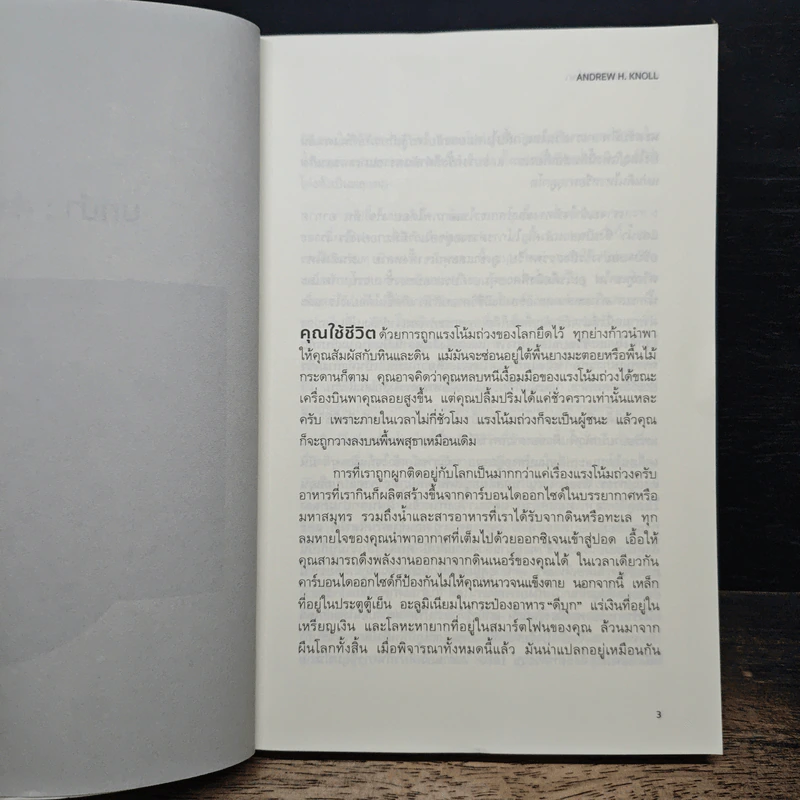 ANDREW H. KNOLL
คุณใช้ชีวิต ด้วยการถูกแรงโน้มถ่วงของโลกยึดไว้ ทุกย่างก้าวนำพา
ให้คุณสัมผัสกับหินและดิน แม้มันจะซ่อนอยู่ใต้พื้นยางมะตอยหรือพื้นไม้
กระดานก็ตาม คุณอาจคิดว่าคุณหลบหนีเงื้อมมือของแรงโน้มถ่วงได้ขณะ
เครื่องบินพาคุณลอยสูงขึ้น แต่คุณปลื้มปริ่มได้แค่ชั่วคราวเท่านั้นแหละ
ครับ เพราะภายในเวลาไม่กี่ชั่วโมง แรงโน้มถ่วงก็จะเป็นผู้ชนะ แล้วคุณ
ก็จะถูกวางลงบนพื้นพสุธาเหมือนเดิม
การที่เราถูกผูกติดอยู่กับโลกเป็นมากกว่าแค่เรื่องแรงโน้มถ่วงครับ
อาหารที่เรากินก็ผลิตสร้างขึ้นจากคาร์บอนไดออกไซด์ในบรรยากาศหรือ
มหาสมุทร รวมถึงน้ำและสารอาหารที่เราได้รับจากดินหรือทะเล ทุก
ลมหายใจของคุณนำพาอากาศที่เต็มไปด้วยออกซิเจนเข้าสู่ปอด เอื้อให้
คุณสามารถดึงพลังงานออกมาจากดินเนอร์ของคุณได้ ในเวลาเดียวกัน
คาร์บอนไดออกไซด์ก็ป้องกันไม่ให้คุณหนาวจนแข็งตาย นอกจากนี้ เหล็ก
ที่อยู่ในประตูตู้เย็น อะลูมิเนียมในกระป๋องอาหาร “ดีบุก” แร่เงินที่อยู่ใน
เหรียญเงิน และโลหะหายากที่อยู่ในสมาร์ตโฟนของคุณ ล้วนมาจาก
ผืนโลกทั้งสิ้น เมื่อพิจารณาทั้งหมดนี้แล้ว มันน่าแปลกอยู่เหมือนกัน
3